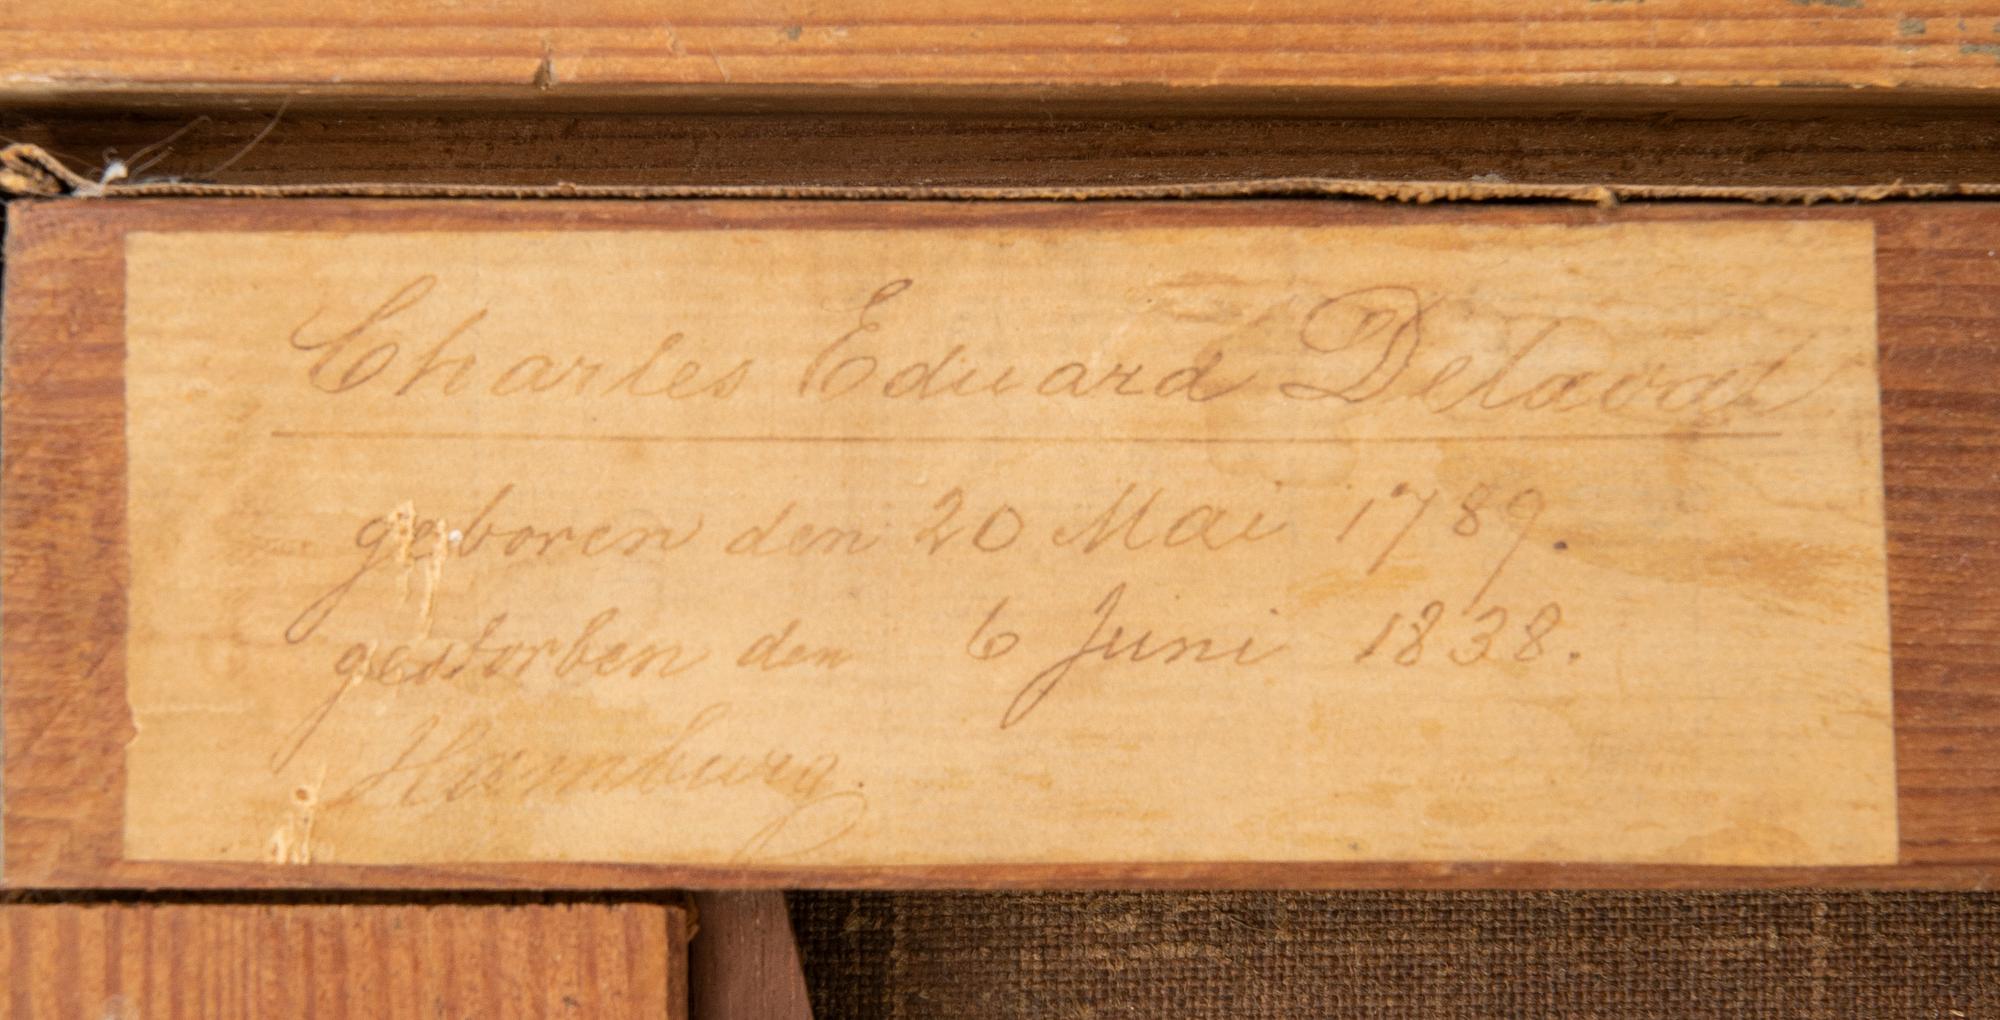 Charles Eduard Delaval
geboren den 20 Mai 1789.
gestorben den 6 Juni 1838.
Hamburg.